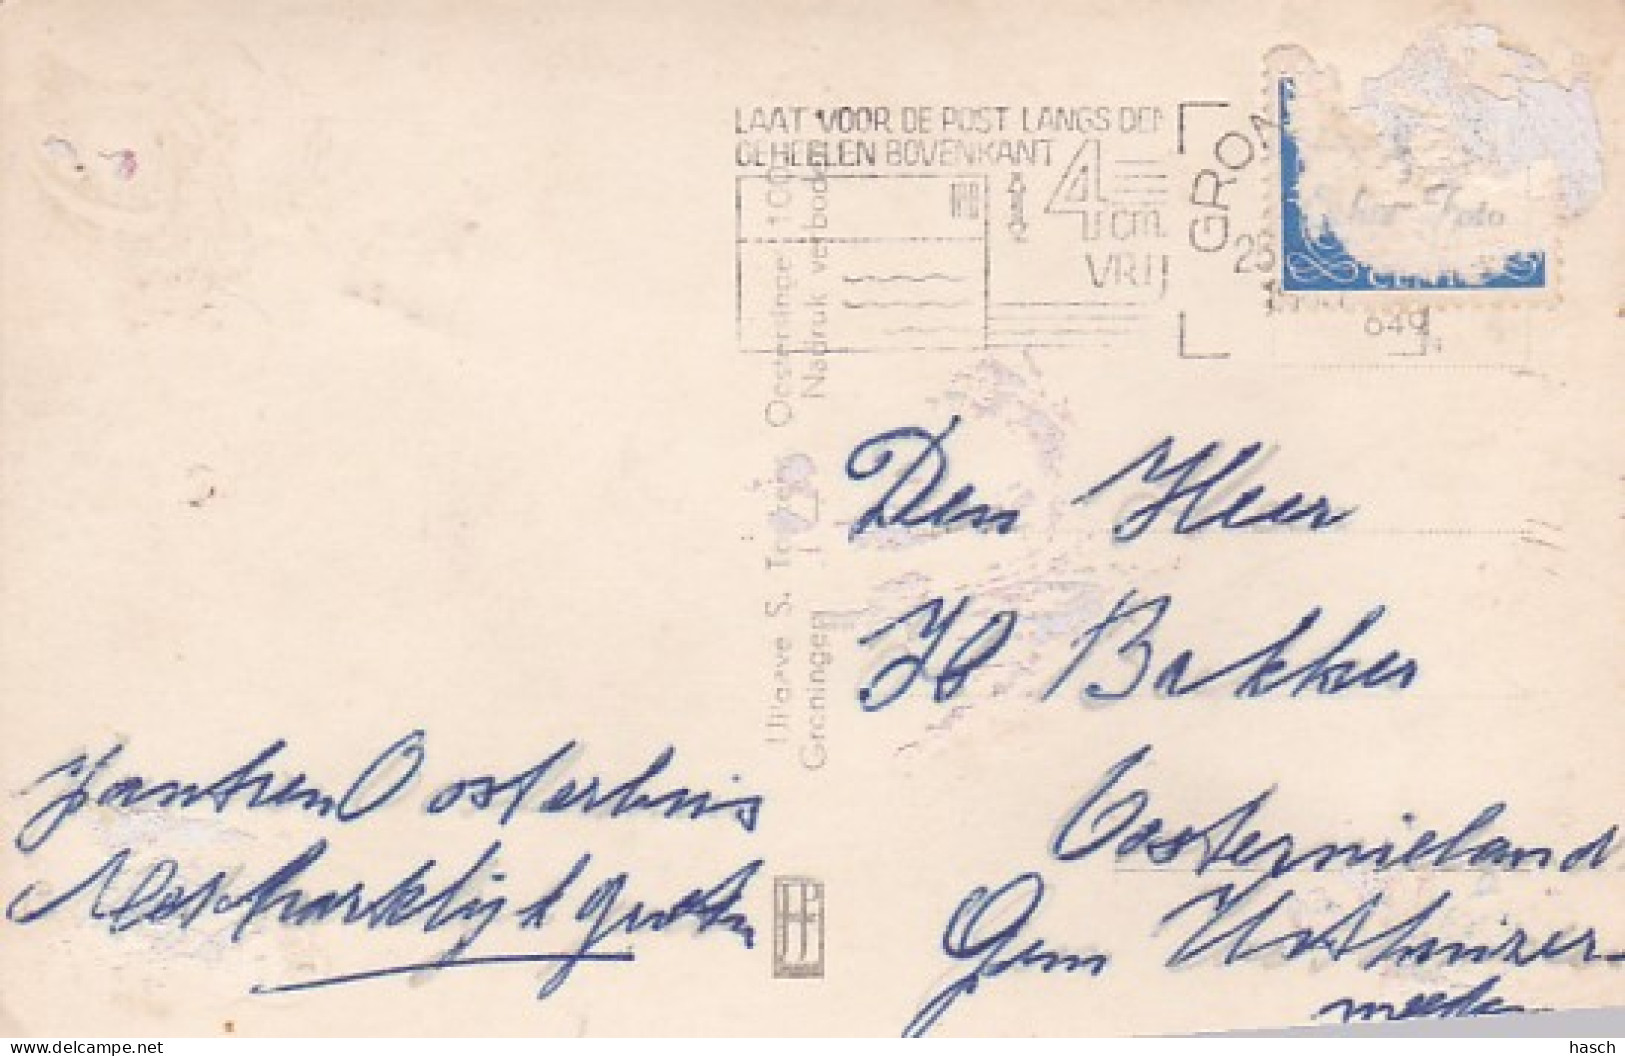 LAAT VOOR DE POST LANGS DEN
GEHEELEN BOVENKANT
4 cm.
VRIJ
GRON
25
649
Echte Foto
Uitgave S. Oosterstraat 100
Groningen Nadruk verboden
Den Heer
H Bakker
Oosternieland
Gem Uithuizer-
meeden
Jantien Oosterhuis
Met hartelijk groeten